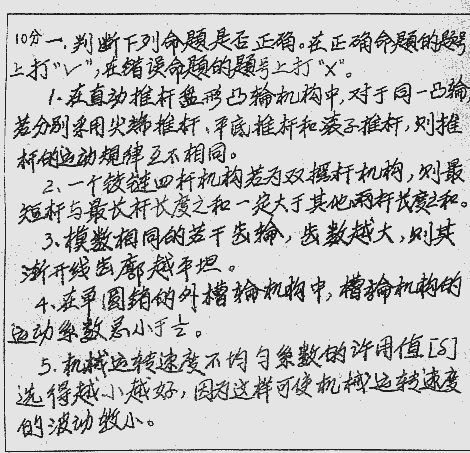 10分 一、判断下列命题是否正确。在正确命题的题号
上打"√",在错误命题的题号上打"×"。
1. 在直动推杆盘形凸轮机构中,对于同一凸轮
若分别采用尖端推杆、平底推杆和滚子推杆,则推
杆的运动规律互不相同。
2、一个铰链四杆机构若为双摇杆机构,则最
短杆与最长杆长度之和一定大于其他两杆长度之和。
3、模数相同的若干齿轮,齿数越大,则其
渐开线齿廓越平坦。
4、在单圆销的外槽轮机构中,槽轮机构的
运动系数总小于½。
5. 机械运转速度不均匀系数的许用值[δ]
选得越小越好,因为这样可使机械运转速度
的波动较小。